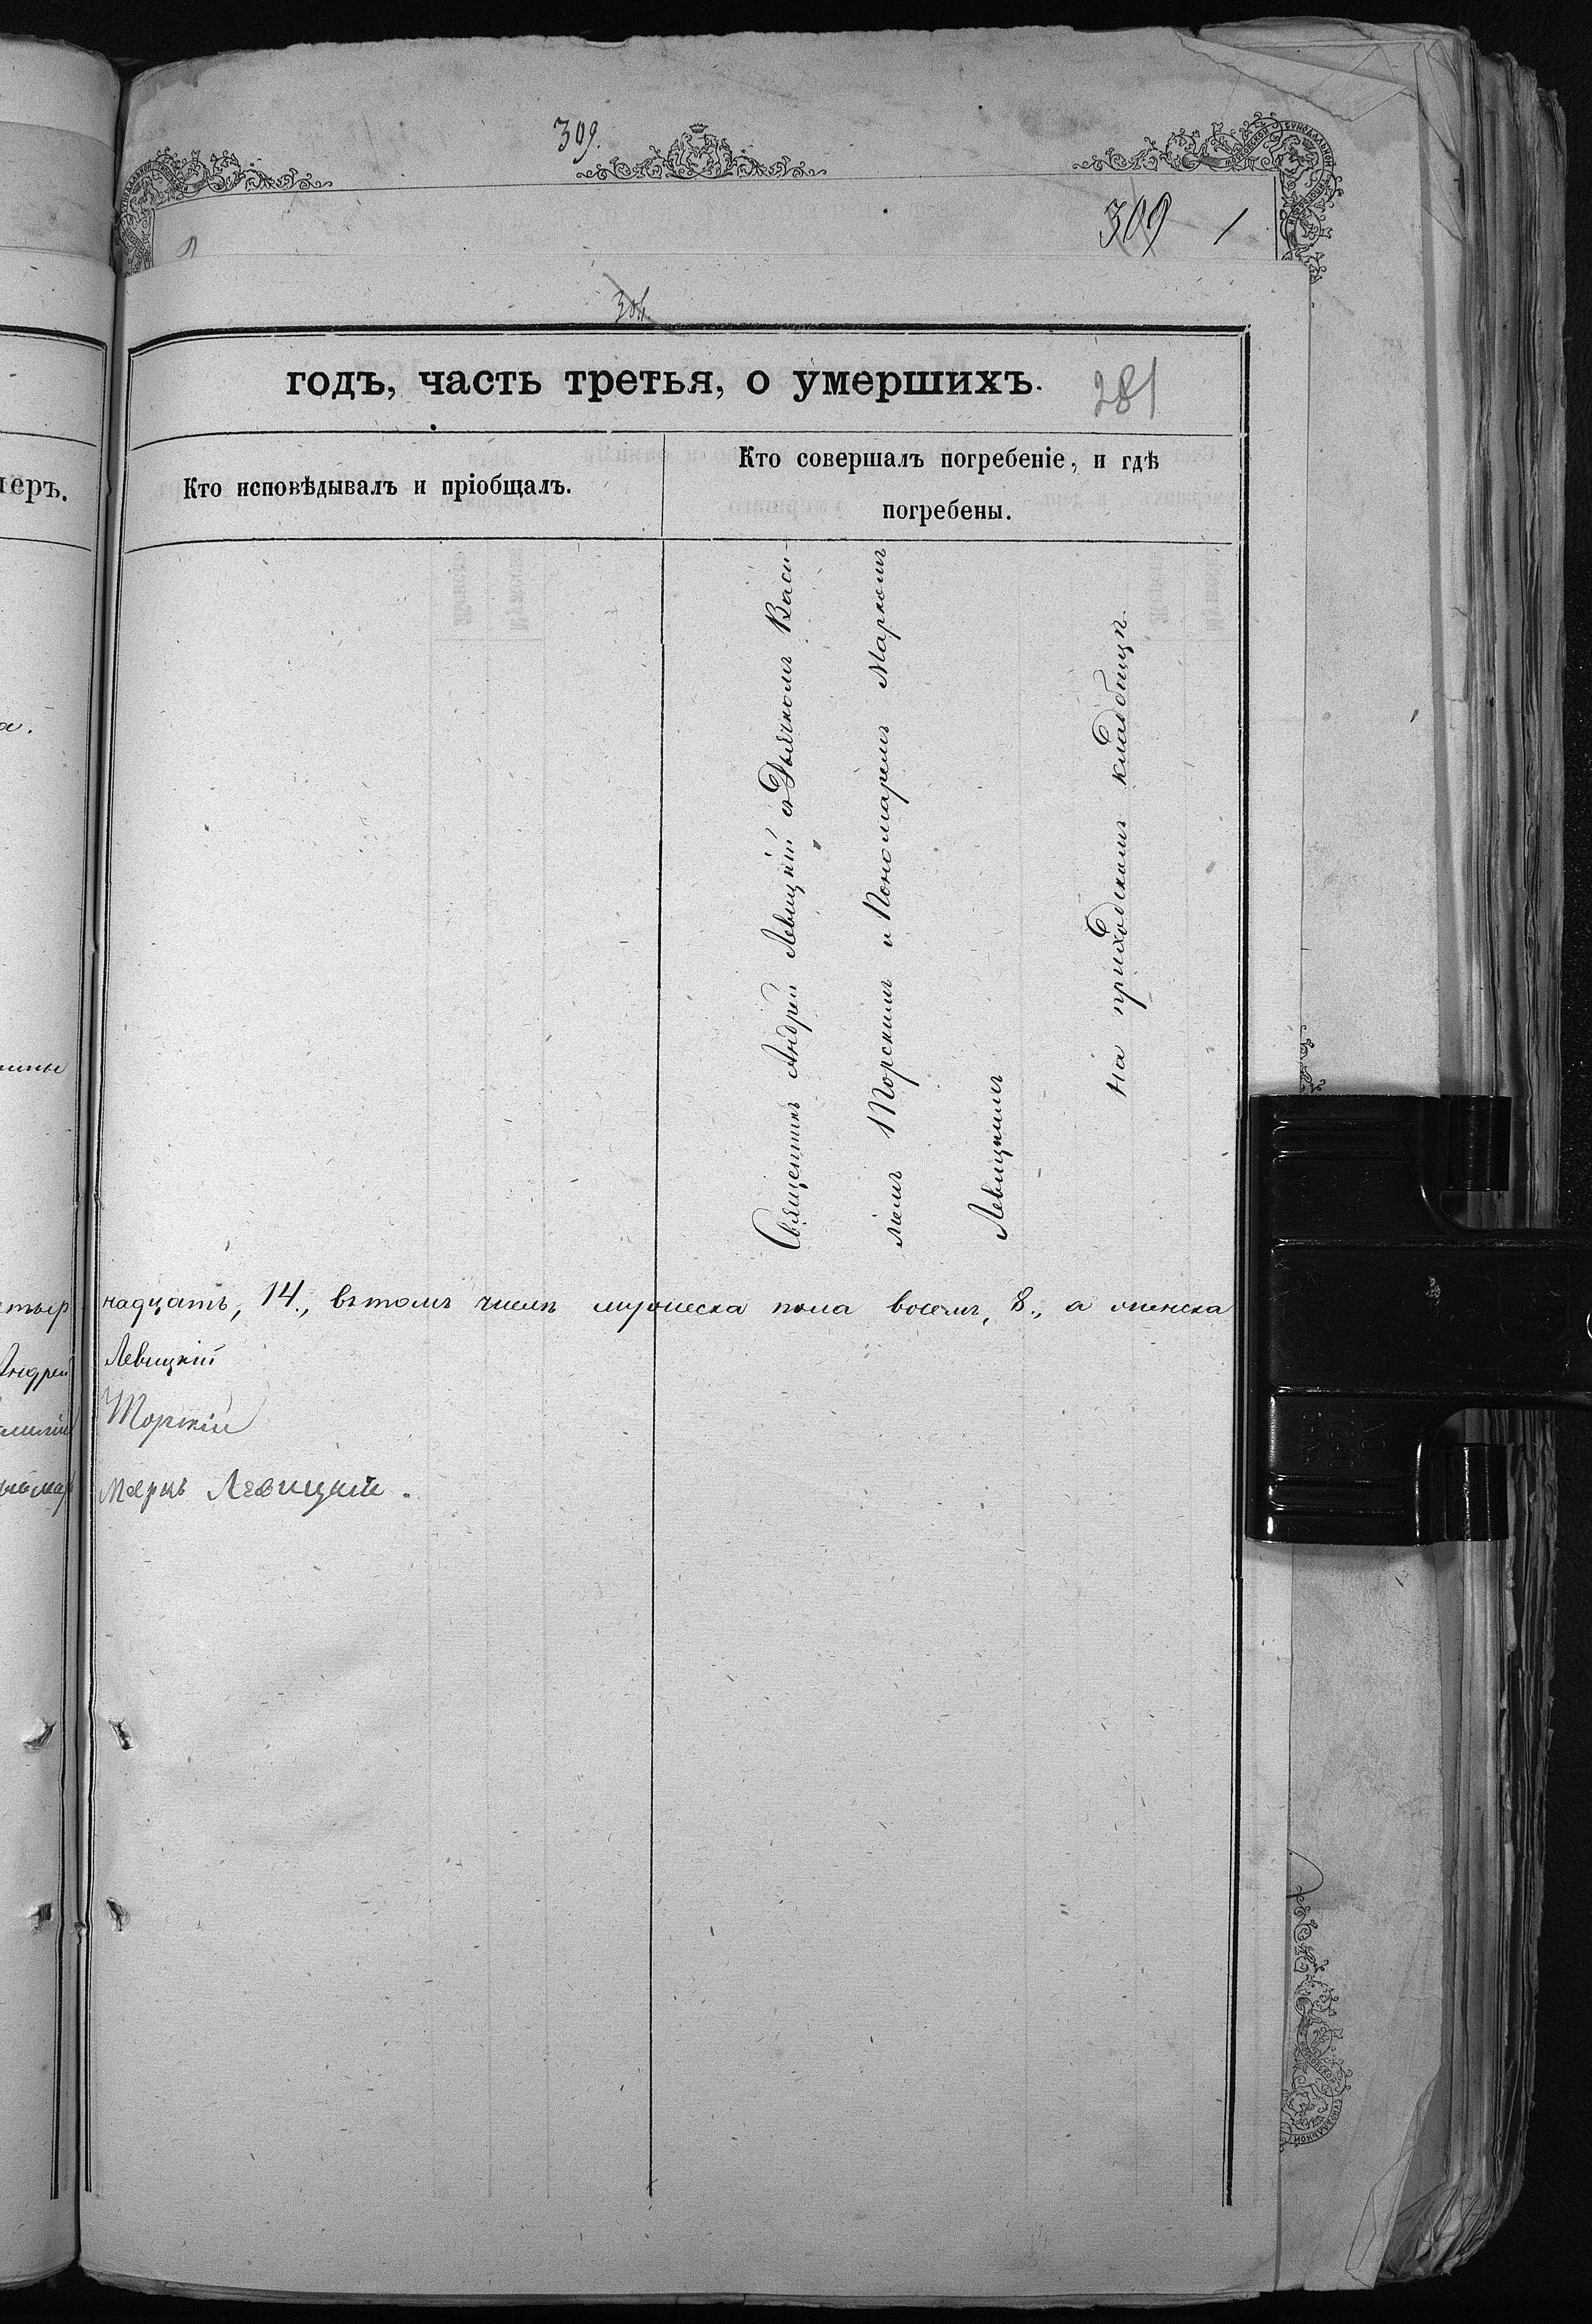 309.
309
304
годъ, часть третья, о умершихъ.
281
Кто исповѣдывалъ и пріобщалъ.
Кто совершалъ погребеніе, и гдѣ
погребены.
Священникъ Андрей Левицкій съ Дьячкомъ Васи-
ліемъ Торскимъ и Пономаремъ Маркомъ
Левицкимъ
на приходскомъ кладбищѣ.
надцать, 14., въ томъ числѣ мужеска пола восемь, 8., а женска
Андрей Левицкій
Торскій
Маркъ Левицкій.